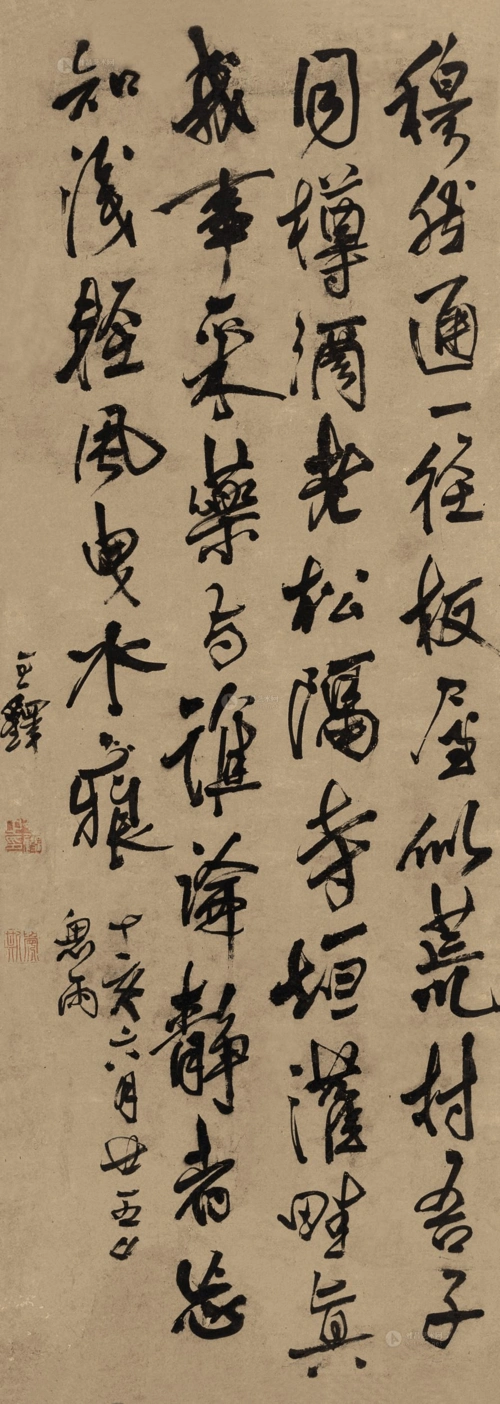 穆然通一徑板屋似荒村吾子
同樽酒老松隔寺垣灌畦真
我事采藥與誰論靜者茲
知淺輕風曳水痕
亥六月廿五日
王鐸